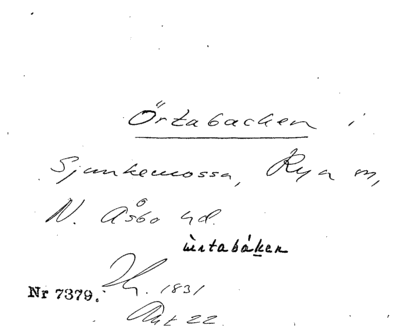 Örtabacken i
Sjunkemossa, Rya sn,
N. Åsbo hd.
ùrtabáken
Nr 7379. 1831
Akt 22